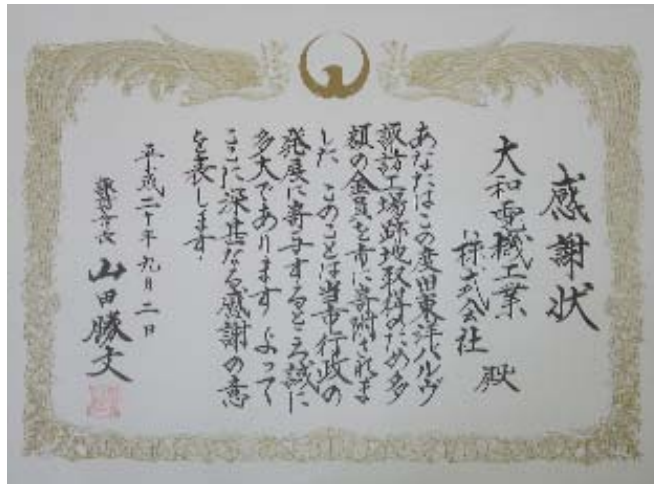 感謝状
大和電機工業
株式会社 殿
あなたはこの度旧東洋バルヴ
諏訪工場跡地取得のため多
額の金員を市に寄附されま
した このことは当市行政の
発展に寄与するところ誠に
多大であります よって
ここに深甚なる感謝の意
を表します
平成二十年九月二日
諏訪市長 山田勝文